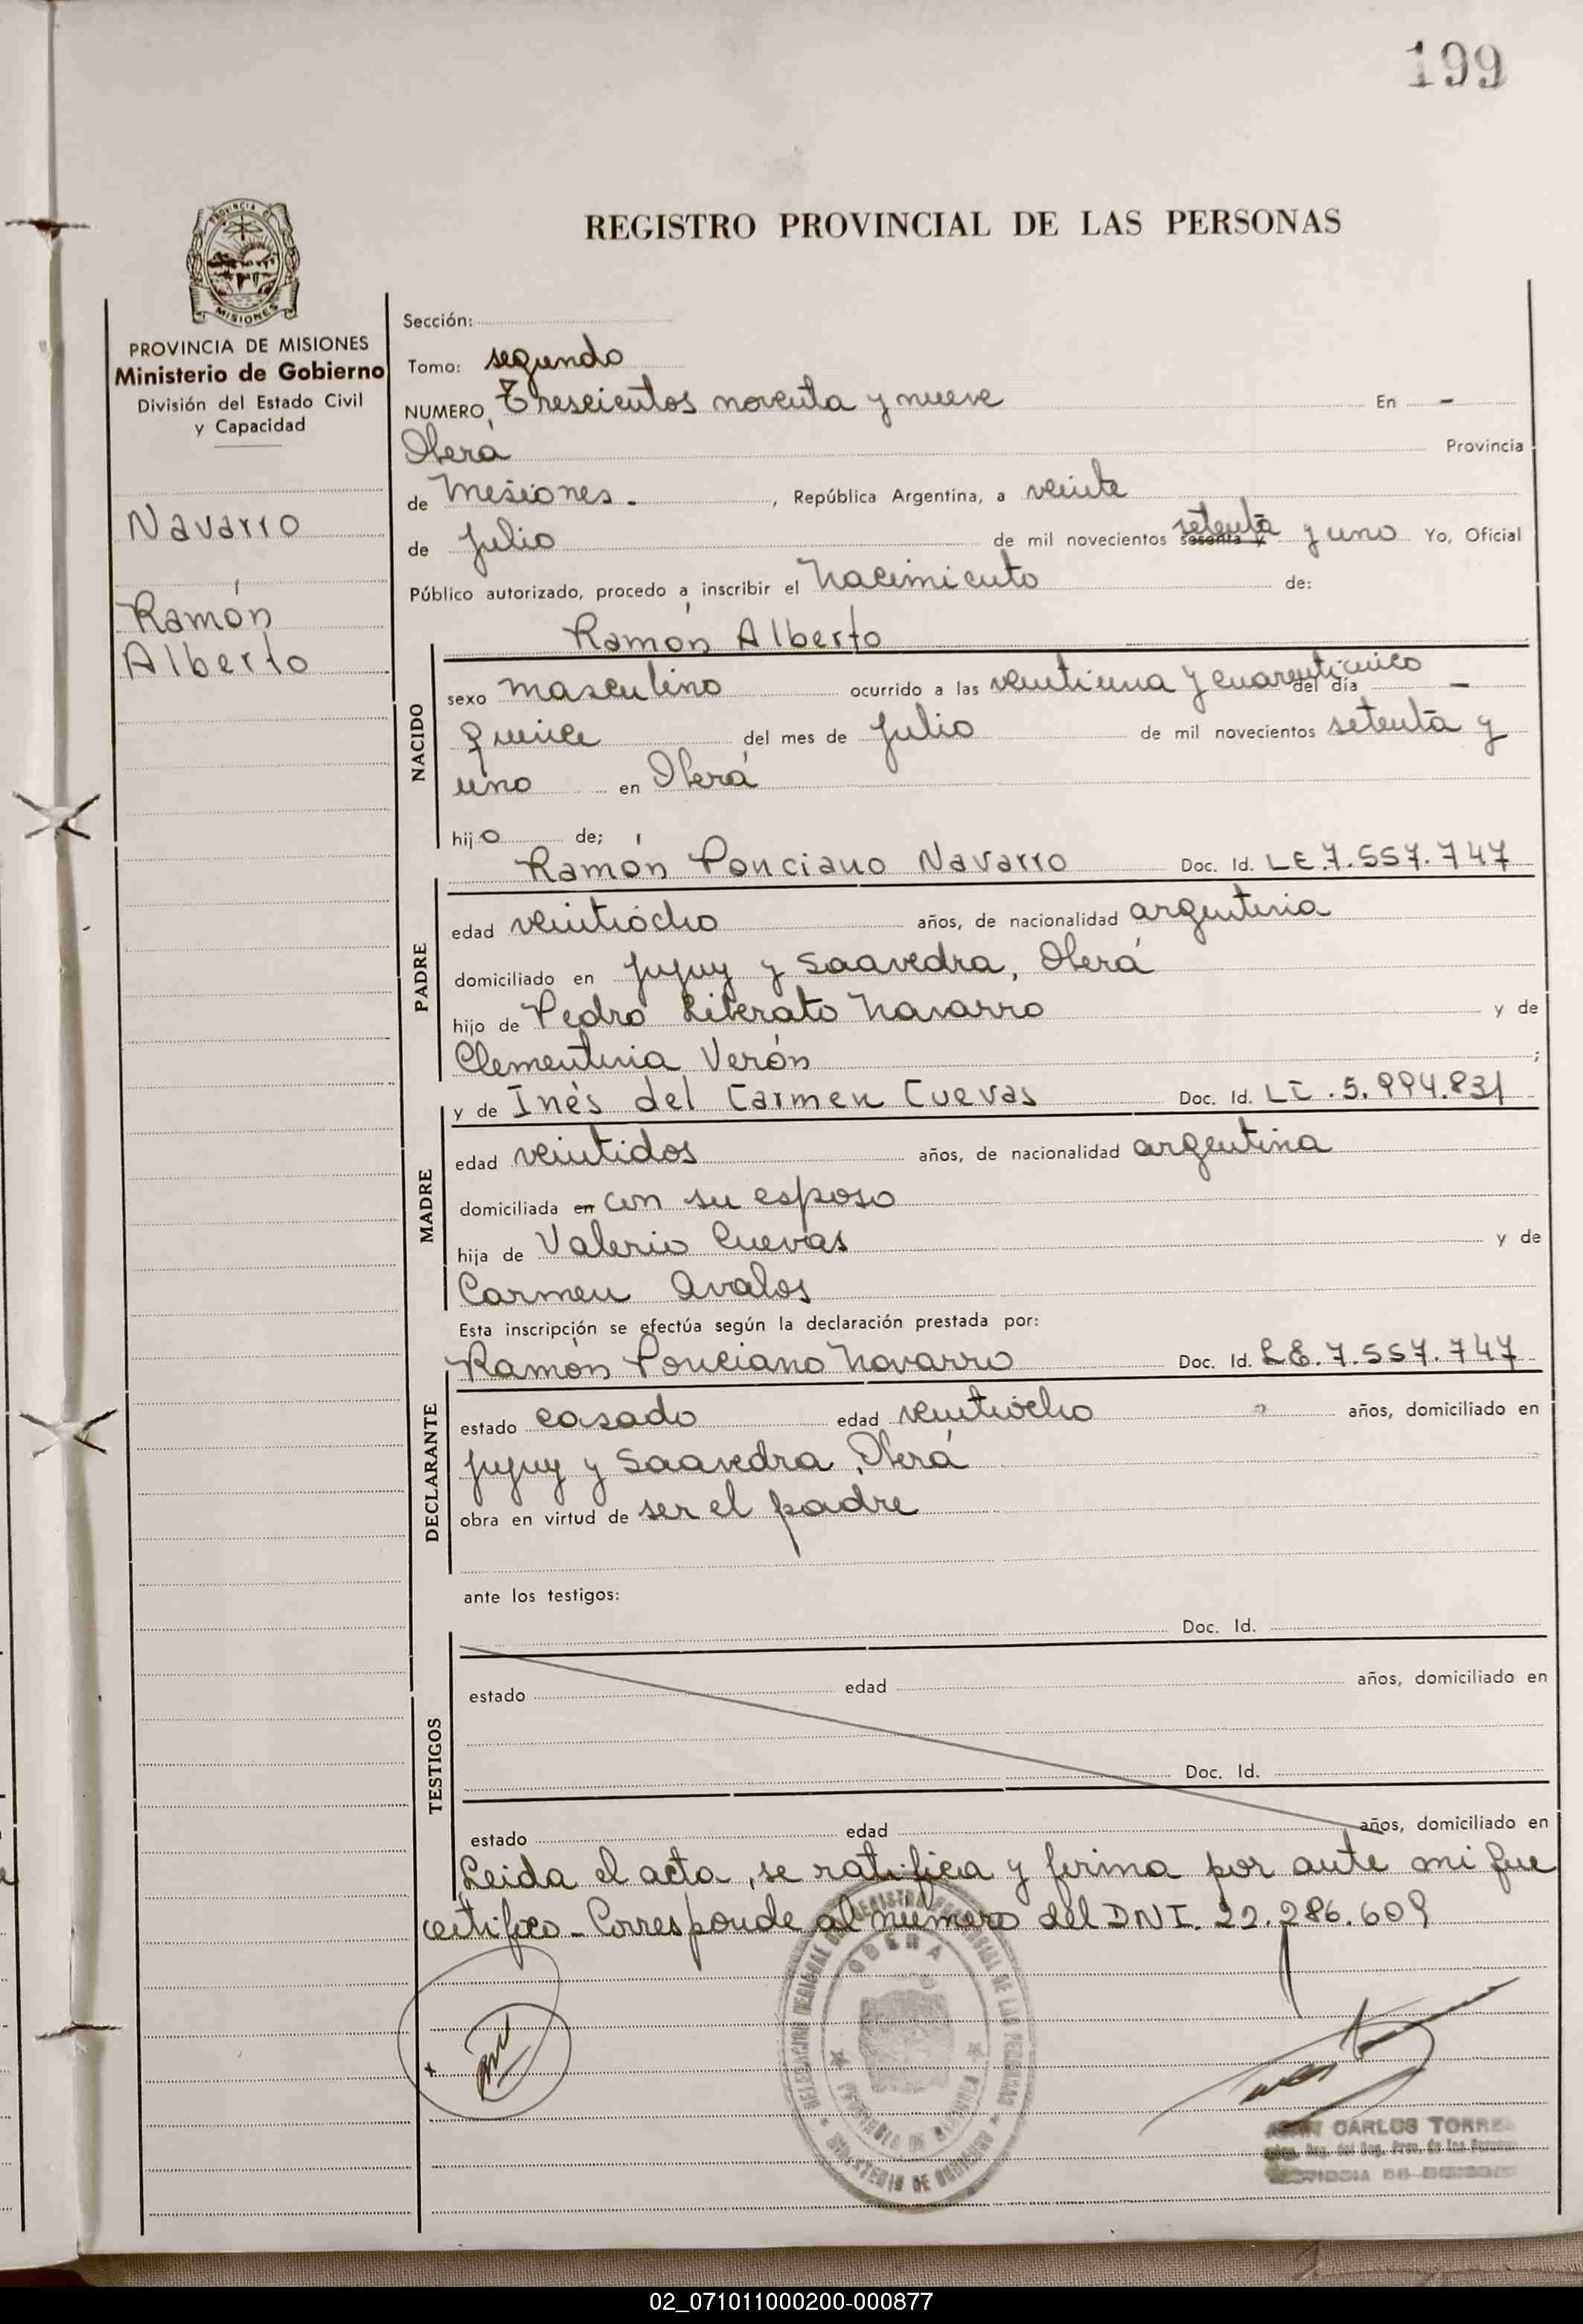 199
PROVINCIA DE MISIONES
REGISTRO PROVINCIAL DE LAS PERSONAS
PROVINCIA DE MISIONES
Ministerio de Gobierno
División del Estado Civil
y Capacidad
Navarro
Ramón
Alberto
Sección:
Tomo: segundo
NUMERO Trescientos noventa y nueve En -
Oberá Provincia
de Misiones - , República Argentina, a veinte
de Julio de mil novecientos sesenta y setenta y uno Yo, Oficial
Público autorizado, procedo a inscribir el Nacimiento de:
Ramón Alberto
NACIDO
sexo masculino ocurrido a las veintiuna y cuarenticinco del día -
quince del mes de Julio de mil novecientos setenta y
uno en Oberá
hijo de;
Ramón Ponciano Navarro Doc. Id. LE.7.557.747
PADRE
edad veintiocho años, de nacionalidad argentina
domiciliado en Jujuy y Saavedra, Oberá
hijo de Pedro Liberato Navarro y de
Clementina Verón ;
y de Inés del Carmen Cuevas Doc. Id. LC.5.994.831
MADRE
edad veintidos años, de nacionalidad argentina
domiciliada en con su esposo
hija de Valerio Cuevas y de
Carmen Avalos
Esta inscripción se efectúa según la declaración prestada por:
Ramón Ponciano Navarro Doc. Id. LE.7.557.747
DECLARANTE
estado casado edad veintiocho años, domiciliado en
Jujuy y Saavedra, Oberá
obra en virtud de ser el padre
ante los testigos:
Doc. Id.
TESTIGOS
estado edad años, domiciliado en
Doc. Id.
estado edad años, domiciliado en
Leida el acta, se ratifica y firma por ante mi que
certifico - Corresponde al número del DNI. 22.286.609
OBERA
MINISTERIO DE GOBIERNO
CARLOS TORRES
02_071011000200-000877